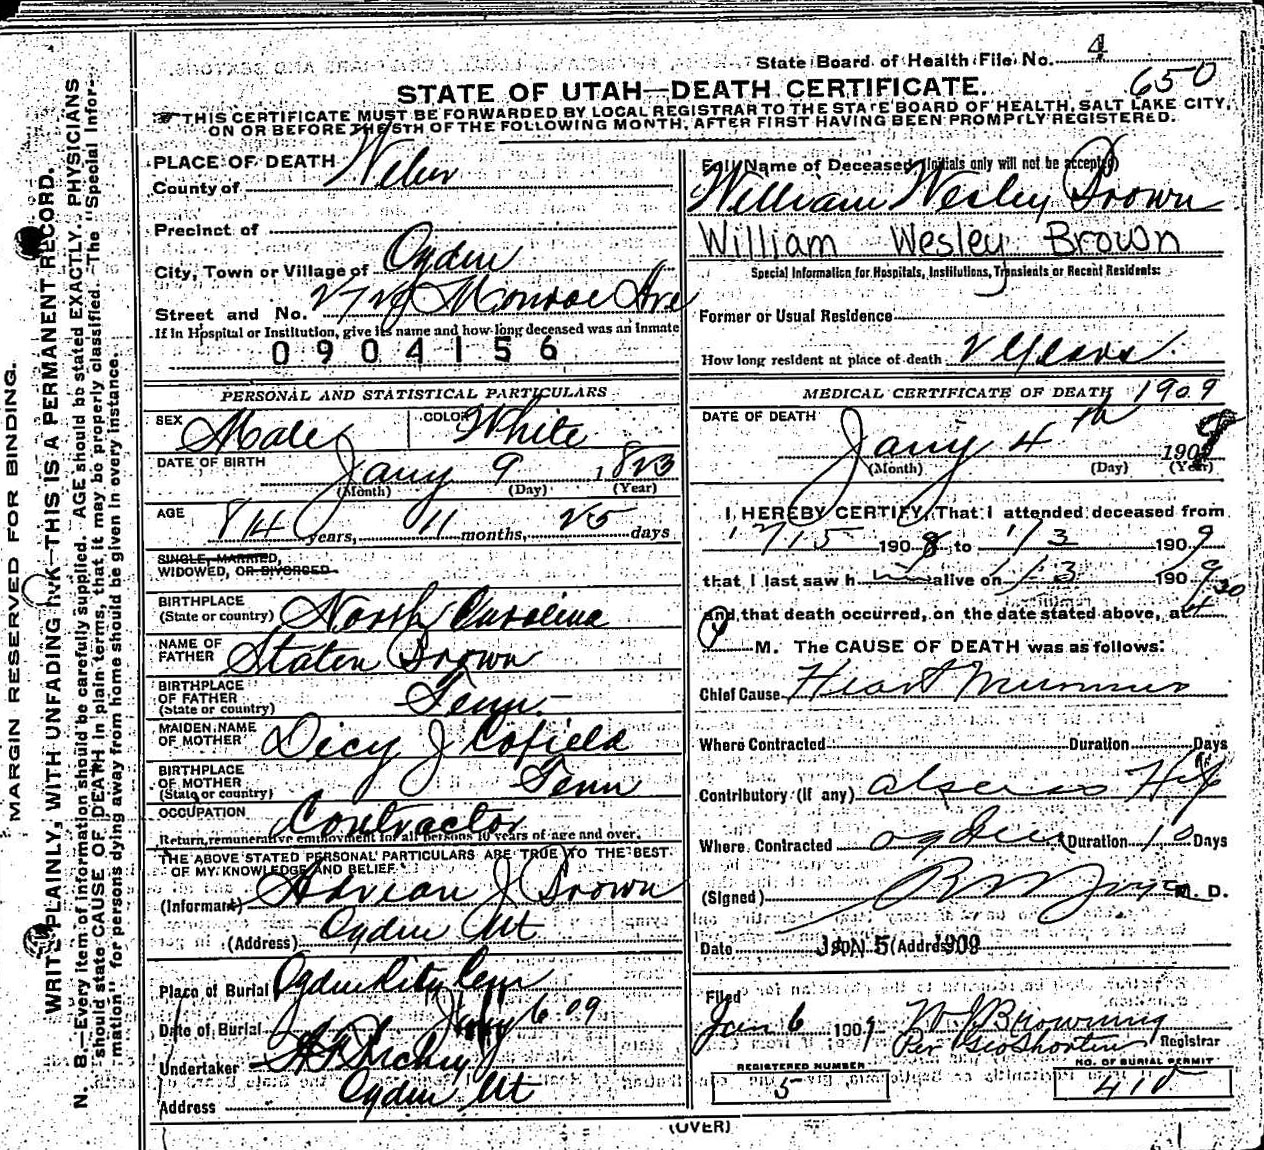 State Board of Health File No. 4
650
STATE OF UTAH—DEATH CERTIFICATE.
THIS CERTIFICATE MUST BE FORWARDED BY LOCAL REGISTRAR TO THE STATE BOARD OF HEALTH, SALT LAKE CITY,
ON OR BEFORE THE 5TH OF THE FOLLOWING MONTH, AFTER FIRST HAVING BEEN PROMPTLY REGISTERED.
MARGIN RESERVED FOR BINDING.
WRITE PLAINLY, WITH UNFADING INK—THIS IS A PERMANENT RECORD.
N. B.—Every item of information should be carefully supplied. AGE should be stated EXACTLY. PHYSICIANS
should state CAUSE OF DEATH in plain terms, that it may be properly classified. The "Special Infor-
mation" for persons dying away from home should be given in every instance.
PLACE OF DEATH
County of Weber
Precinct of
City, Town or Village of Ogden
Street and No. 2728 Monroe Ave
If in Hospital or Institution, give its name and how long deceased was an inmate
0904156
PERSONAL AND STATISTICAL PARTICULARS
SEX Male COLOR White
DATE OF BIRTH Jany 9 1823
(Month) (Day) (Year)
AGE 84 years, 11 months, 25 days
SINGLE, MARRIED,
WIDOWED, OR DIVORCED
BIRTHPLACE
(State or country) North Carolina
NAME OF
FATHER Staten Brown
BIRTHPLACE
OF FATHER
(State or country) Tenn
MAIDEN NAME
OF MOTHER Dicy J Cofield
BIRTHPLACE
OF MOTHER
(State or country) Tenn
OCCUPATION Contractor
Return remunerative employment for all persons 10 years of age and over.
THE ABOVE STATED PERSONAL PARTICULARS ARE TRUE TO THE BEST
OF MY KNOWLEDGE AND BELIEF.
(Informant) Adrian J Brown
(Address) Ogden Ut
Place of Burial Ogden City Cem
Date of Burial 6 09
Undertaker
Address Ogden Ut
Full Name of Deceased (Initials only will not be accepted)
William Wesley Brown
William Wesley Brown
Special Information for Hospitals, Institutions, Transients or Recent Residents:
Former or Usual Residence
How long resident at place of death 2 Years.
MEDICAL CERTIFICATE OF DEATH 1909
DATE OF DEATH
Jany 4th 1909
(Month) (Day) (Year)
I HEREBY CERTIFY, That I attended deceased from
1908 to 1/3 1909
that I last saw h im alive on 1-3 1909
and that death occurred, on the date stated above, at 4 30
M. The CAUSE OF DEATH was as follows:
Chief Cause Heart Murmur
Where Contracted Duration Days
Contributory (If any) abscess Hip
Where Contracted Ogden Duration 10 Days
(Signed) M. D.
Date JAN 5 1909 (Address)
Filed
Jan 6 1909 W J Browning
Per Geo Shorten Registrar
REGISTERED NUMBER
5
NO. OF BURIAL PERMIT
410
(OVER)